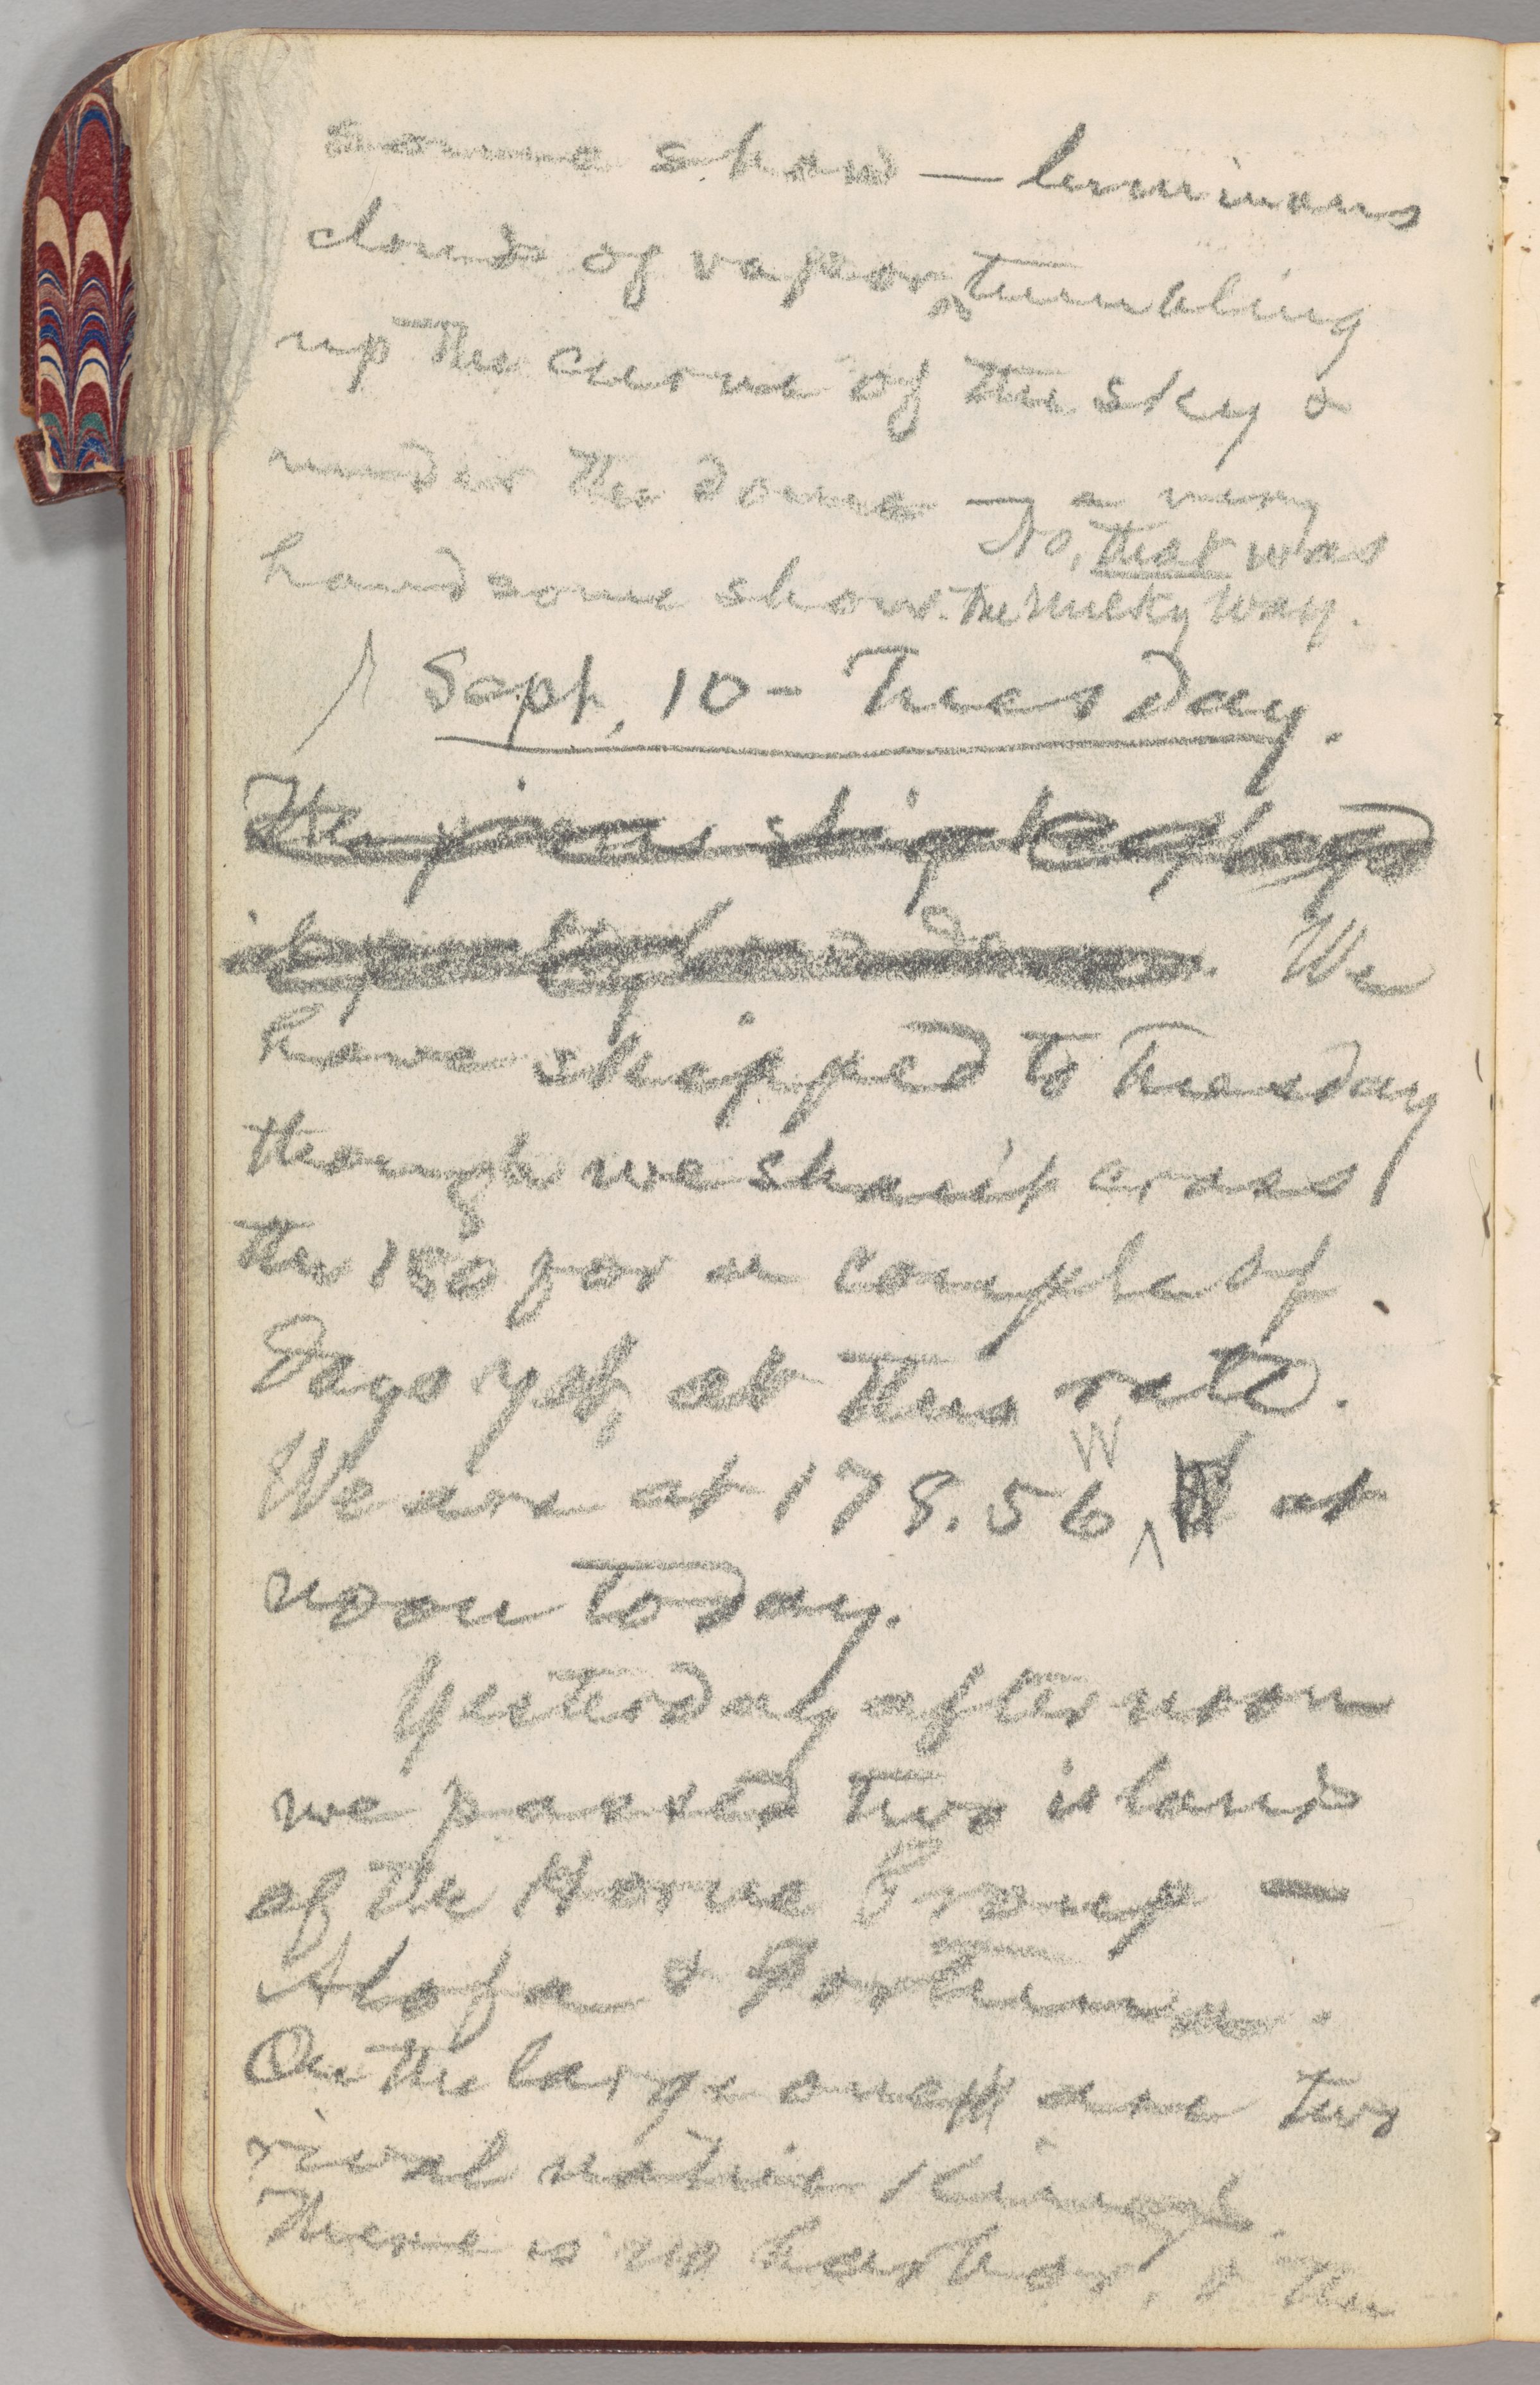 some show — luminous
clouds of vapor tumbling
up the curve of the sky &
under the dome — a very
No, that was
handsome show. The Milky Way.
Sept, 10 - Tuesday.
We
have skipped to Tuesday
though we shan't cross
the 180 for a couple of
days yet, at this rate.
W
We are at 178.56, at
noon today.
Yesterday afternoon
we passed two islands
of the Horne Group —
Alofa & Fortuna.
On the large one are two
rival native Kings.
There is no harbor, & the